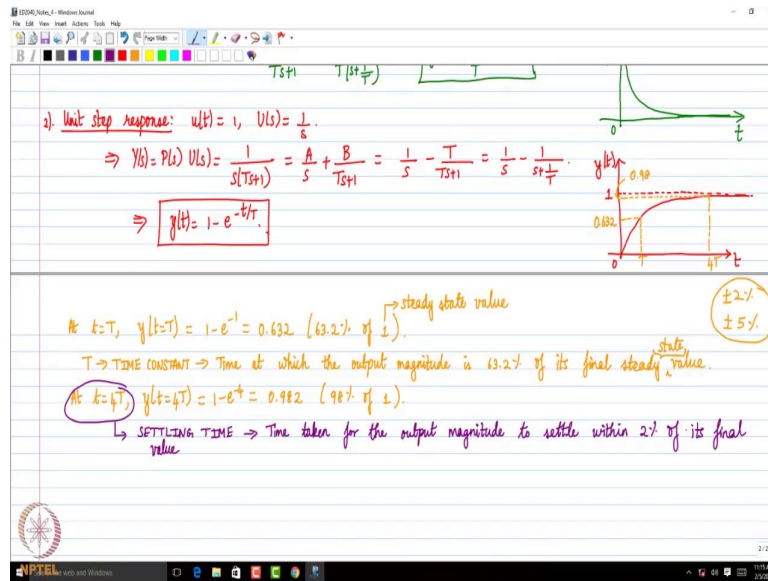 ED2040_Notes_4 - Windows Journal
File Edit View Insert Actions Tools Help
Page Width
B I
Ts+1 T(s+1/T) T
0 t
2). Unit step response: u(t) = 1, U(s) = 1/s.
⇒ Y(s) = P(s) U(s) = 1/(s(Ts+1)) = A/s + B/(Ts+1) = 1/s - T/(Ts+1) = 1/s - 1/(s+1/T).
⇒ y(t) = 1 - e^(-t/T).
y(t)
0.98
1
0.632
0 T 4T t
→ steady state value
±2%
±5%
At t=T, y(t=T) = 1-e^-1 = 0.632 (63.2% of 1).
state
T → TIME CONSTANT → Time at which the output magnitude is 63.2% of its final steady value.
At t=4T, y(t=4T) = 1-e^-4 = 0.982 (98% of 1).
→ SETTLING TIME → Time taken for the output magnitude to settle within 2% of its final
value
2/2
NPTEL
web and Windows
11:15 A